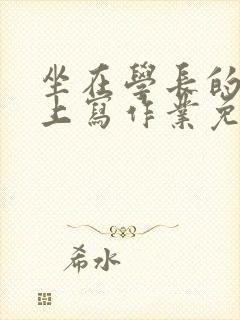 坐在學長的
上寫作業免
希水